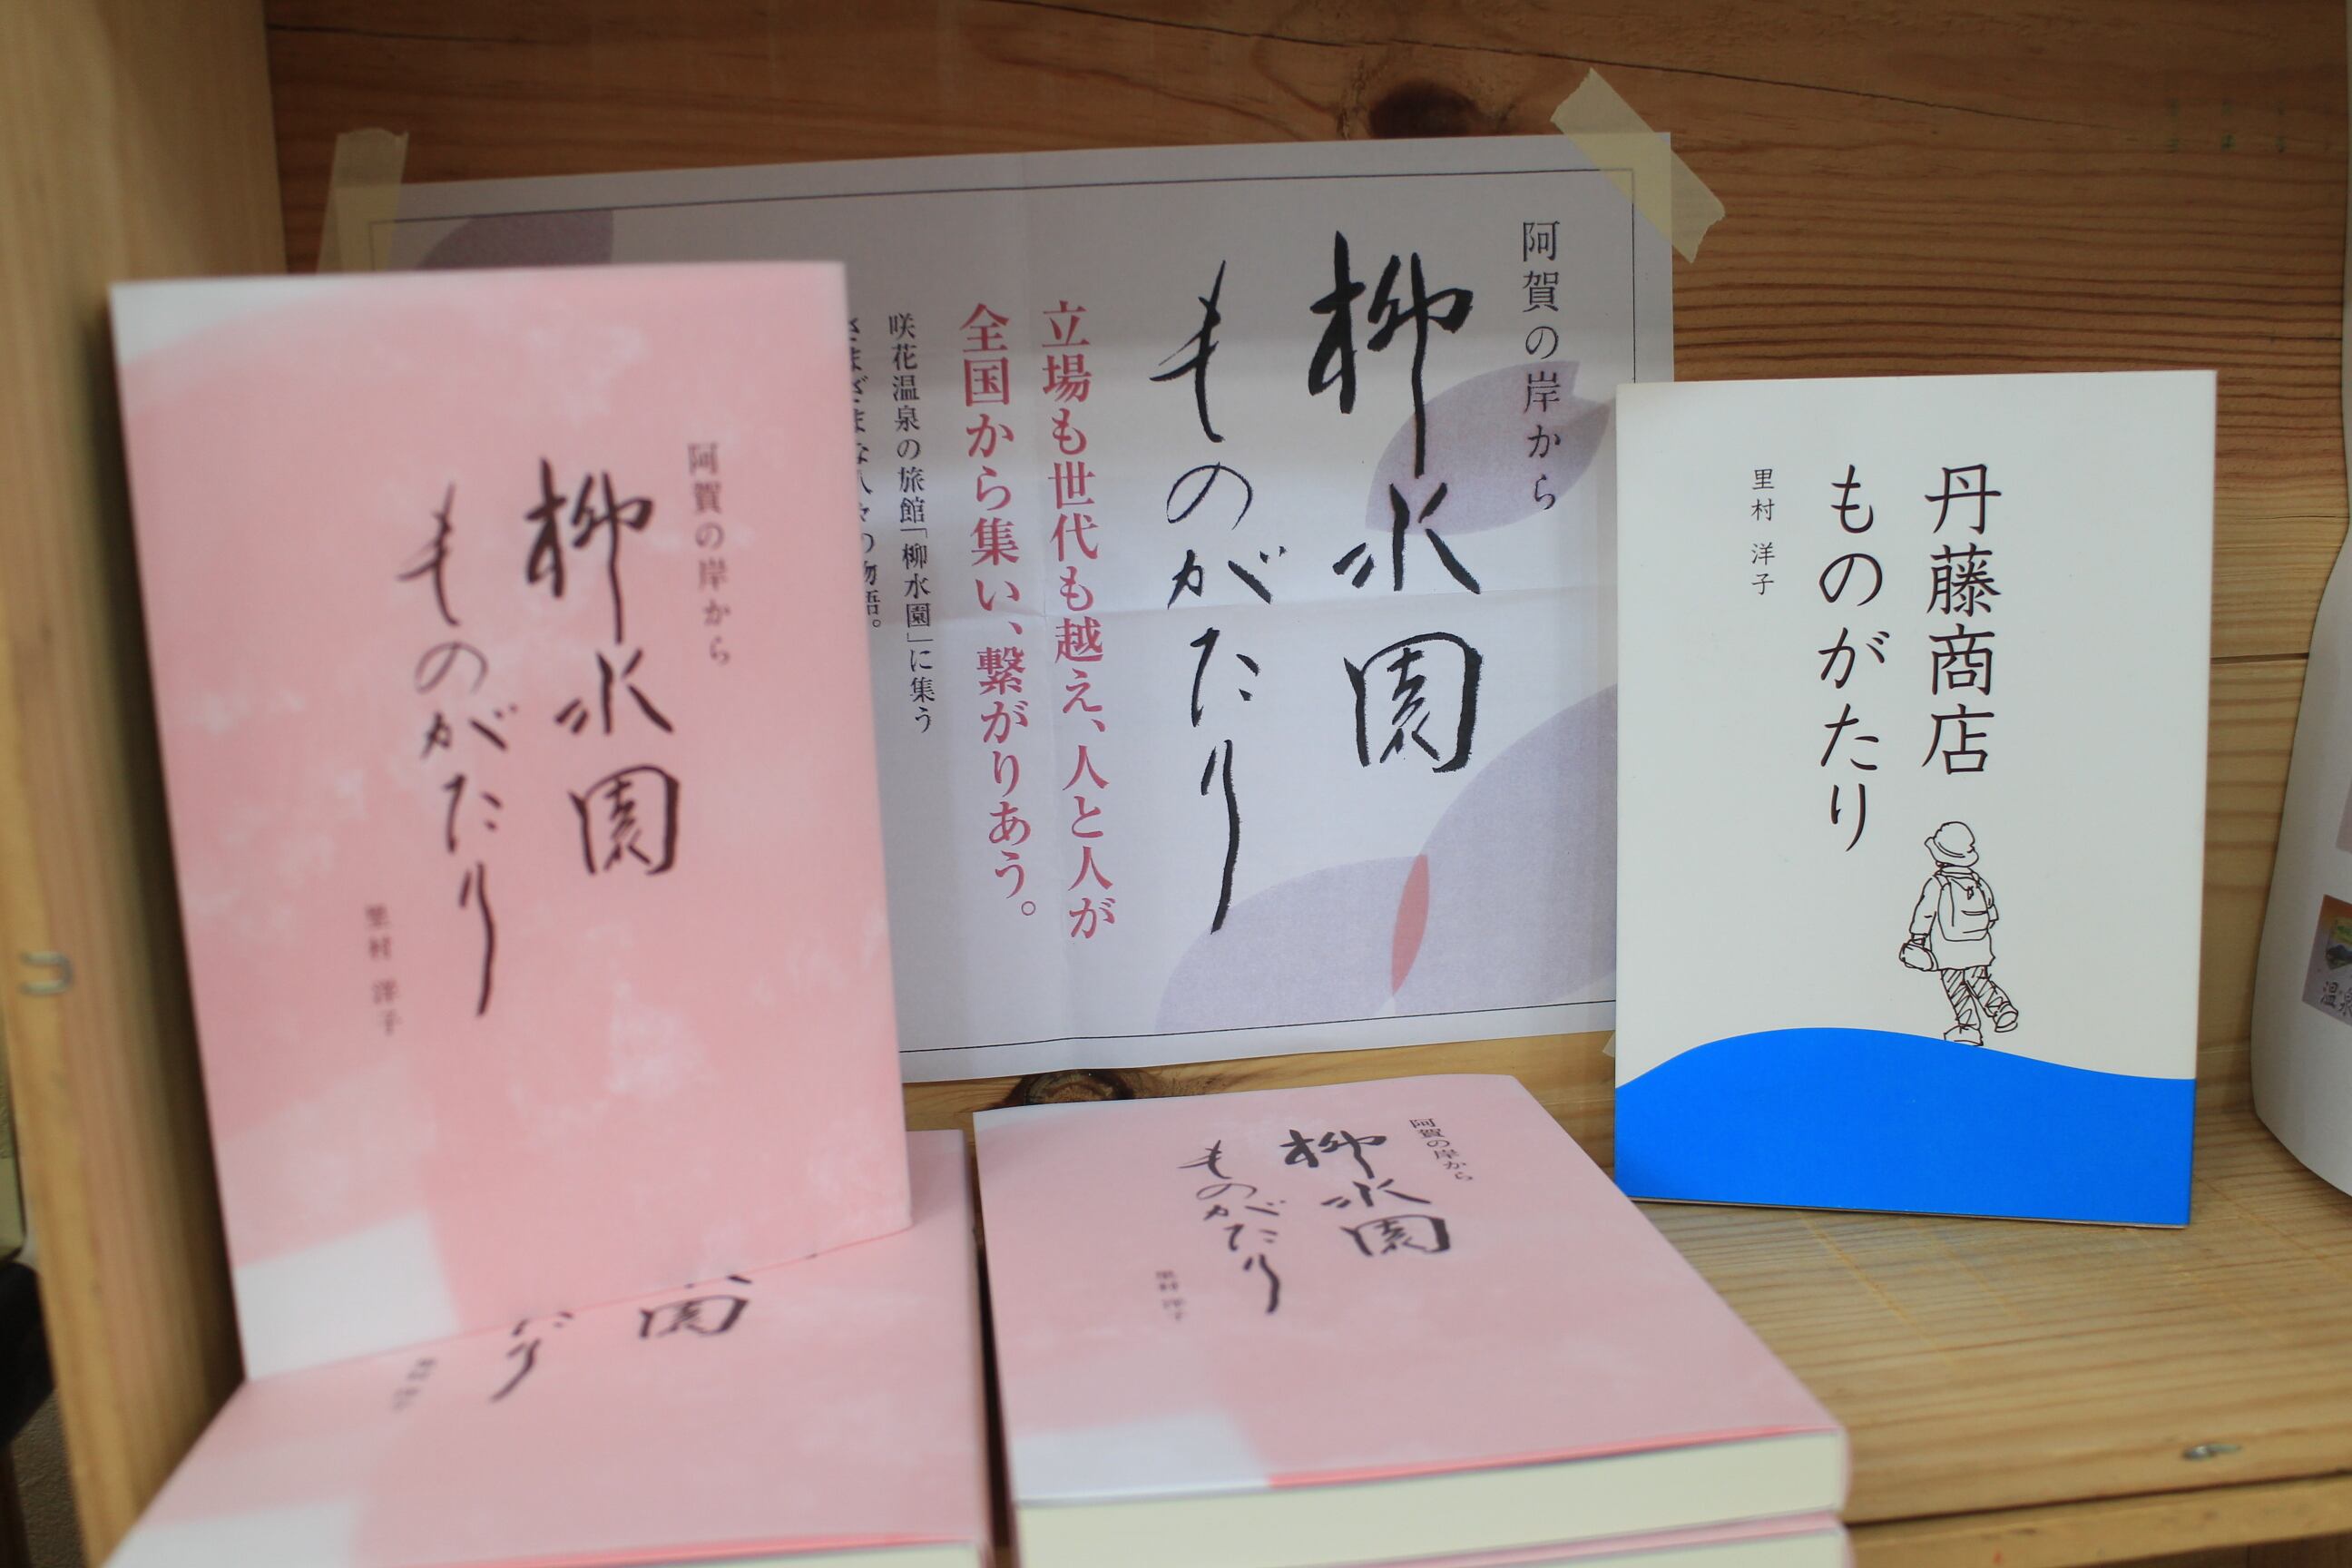 阿賀の岸から
柳水園
ものがたり
立場も世代も越え、人と人が
全国から集い、繋がりあう。
咲花温泉の旅館「柳水園」に集う
さまざまな人々の物語。
阿賀の岸から
柳水園
ものがたり
里村 洋子
丹藤商店
ものがたり
里村 洋子
阿賀の岸から
柳水園
ものがたり
里村 洋子
園
温泉